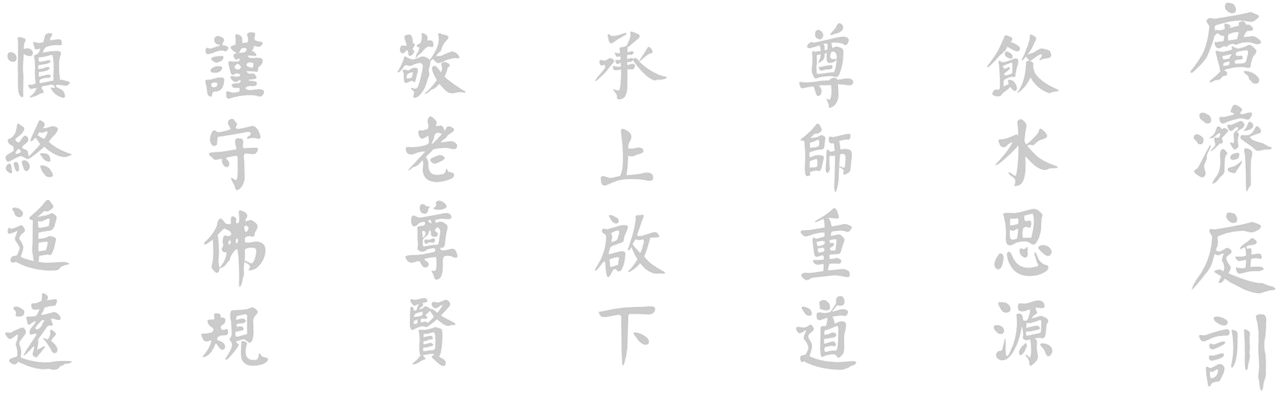 廣濟庭訓
飲水思源
尊師重道
承上啟下
敬老尊賢
謹守佛規
慎終追遠